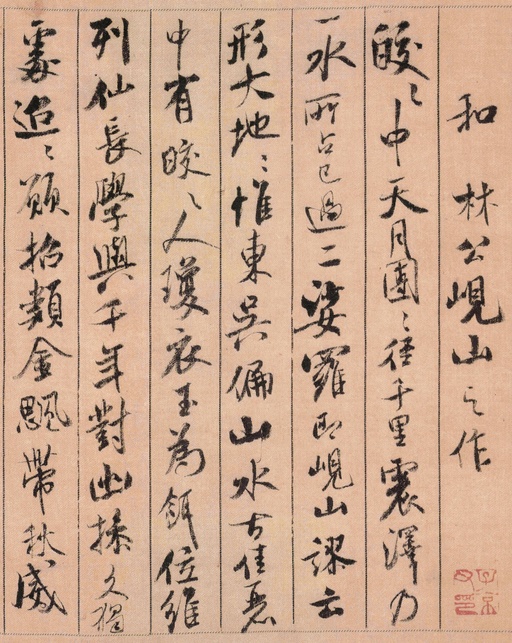 和 林公峴山之作
皎〻中天月團〻徑千里震澤乃
一水所占已過二娑羅即峴山謬云
形大地〻惟東吳偏山水古佳麗
中有皎〻人瓊衣玉為餌位維
列仙長學與千年對幽操久獨
處迢〻願招類金颸帶秋威